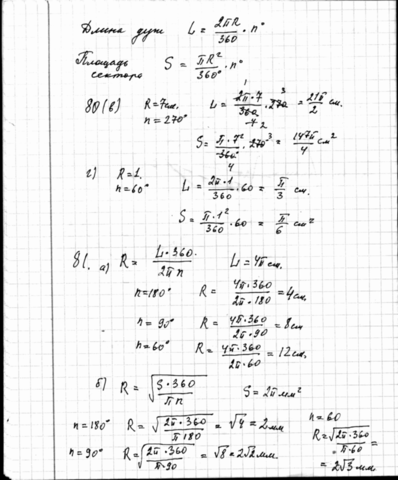 Длина дуги L = 2πR/360 · n°
Площадь сектора S = πR²/360° · n°
80(в) R=7см. L = 2π·7/360 · 270 = 21π/2 см.
n = 270°
S = π·7²/360 · 270 = 147π/4 см²
г) R=1. L = 2π·1/360 · 60 = π/3 см.
n=60°
S = π·1²/360 · 60 = π/6 см²
81. а) R = L·360/2πn L = 4π см.
n=180° R = 4π·360/2π·180 = 4см.
n = 90° R = 4π·360/2π·90 = 8см
n=60° R = 4π·360/2π·60 = 12см.
б) R = √(S·360/πn) S = 2π мм²
n=180° R = √(2π·360/π180) = √4 = 2мм
n=90° R = √(2π·360/π·90) = √8 = 2√2 мм.
n=60
R = √(2π·360/π·60) =
= 2√3 мм